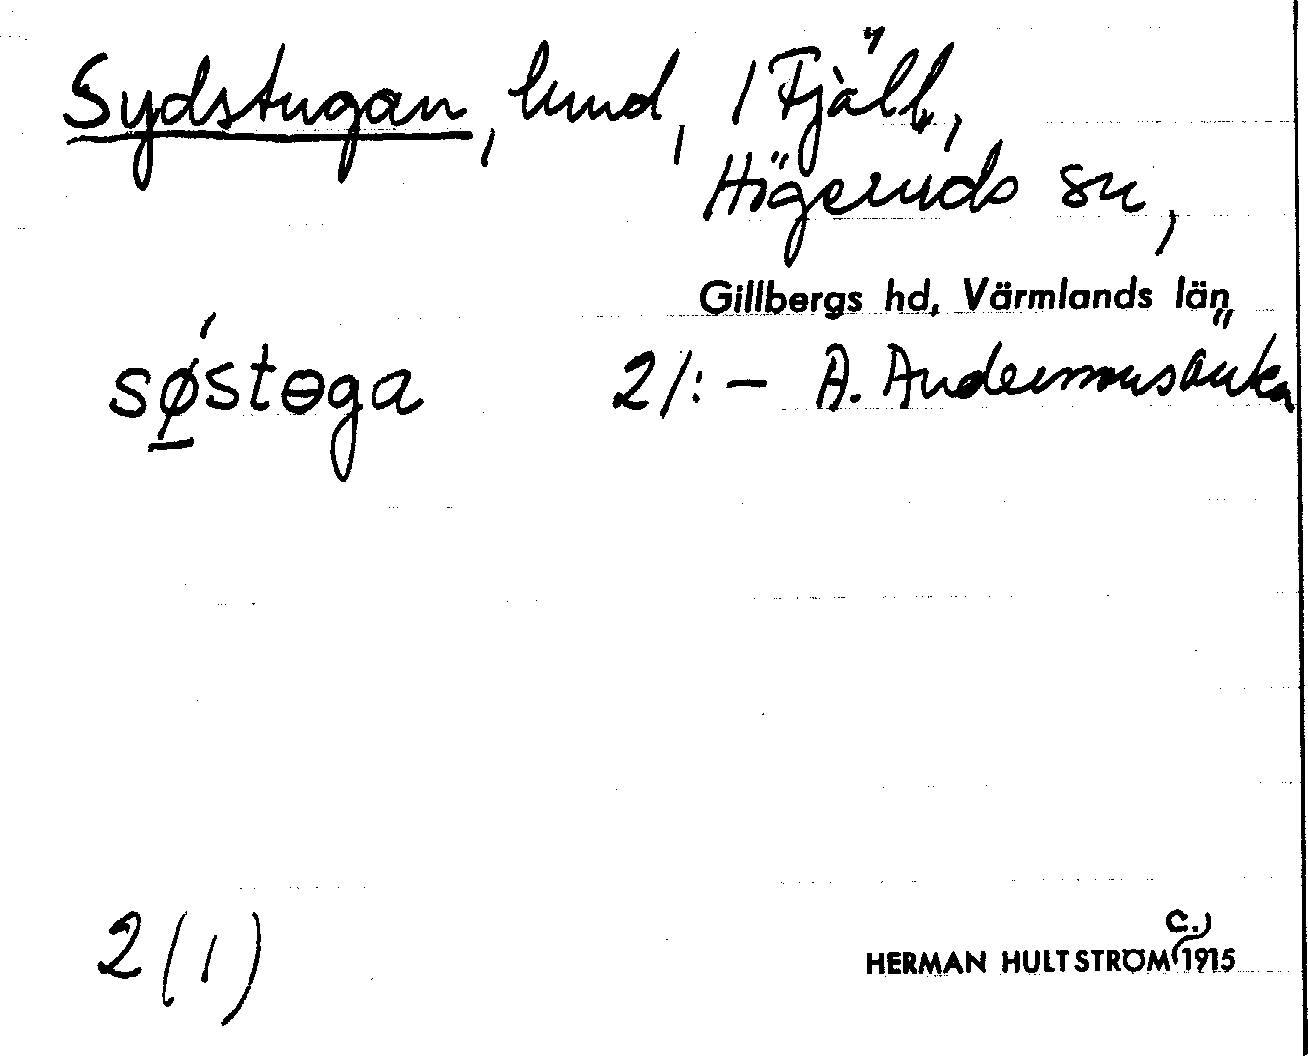 Sydstugan, hmd, 1 Fjäll,
Högeruds sn,
Gillbergs hd, Värmlands län
sǿ̲stɵga 2/: – A. Anderssonsänka
2 (1)
c.)
HERMAN HULTSTRÖM 1915